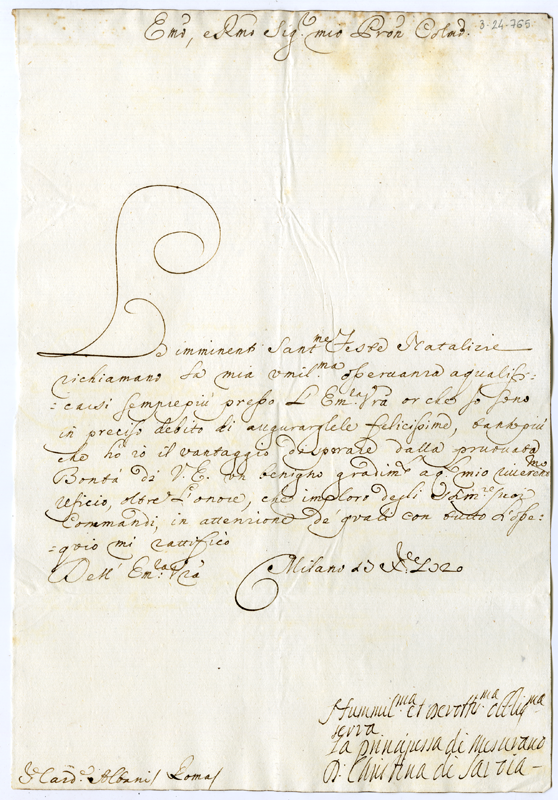 3-24-765
Emo, e Rmo Sig.r mio Pron Colmo.
Le imminenti Santme Feste Natalizie
richiamano la mia umilma osservanza a qualifi-
-carsi sempre più presso l'Emza Vra or che so sono
in preciso debito di augurarglele felicissime, tanto più
che hò io il vantaggio desperare dalla pruovata
Bontà de V. E. un benigno gradimto a qo mio riverente
uficio, oltre l'onore, che imploro degli suoi
Commandi, in attenzione de quali con tutto l'osse-
-quio mi rattifico
Dell' Emza Vra Milano 23 Xbre 1720
Hummilma et Devottma oblligma
serva
La prinsipessa di Meserano
D: Christina di Savoia
Sr Card. Albani Roma